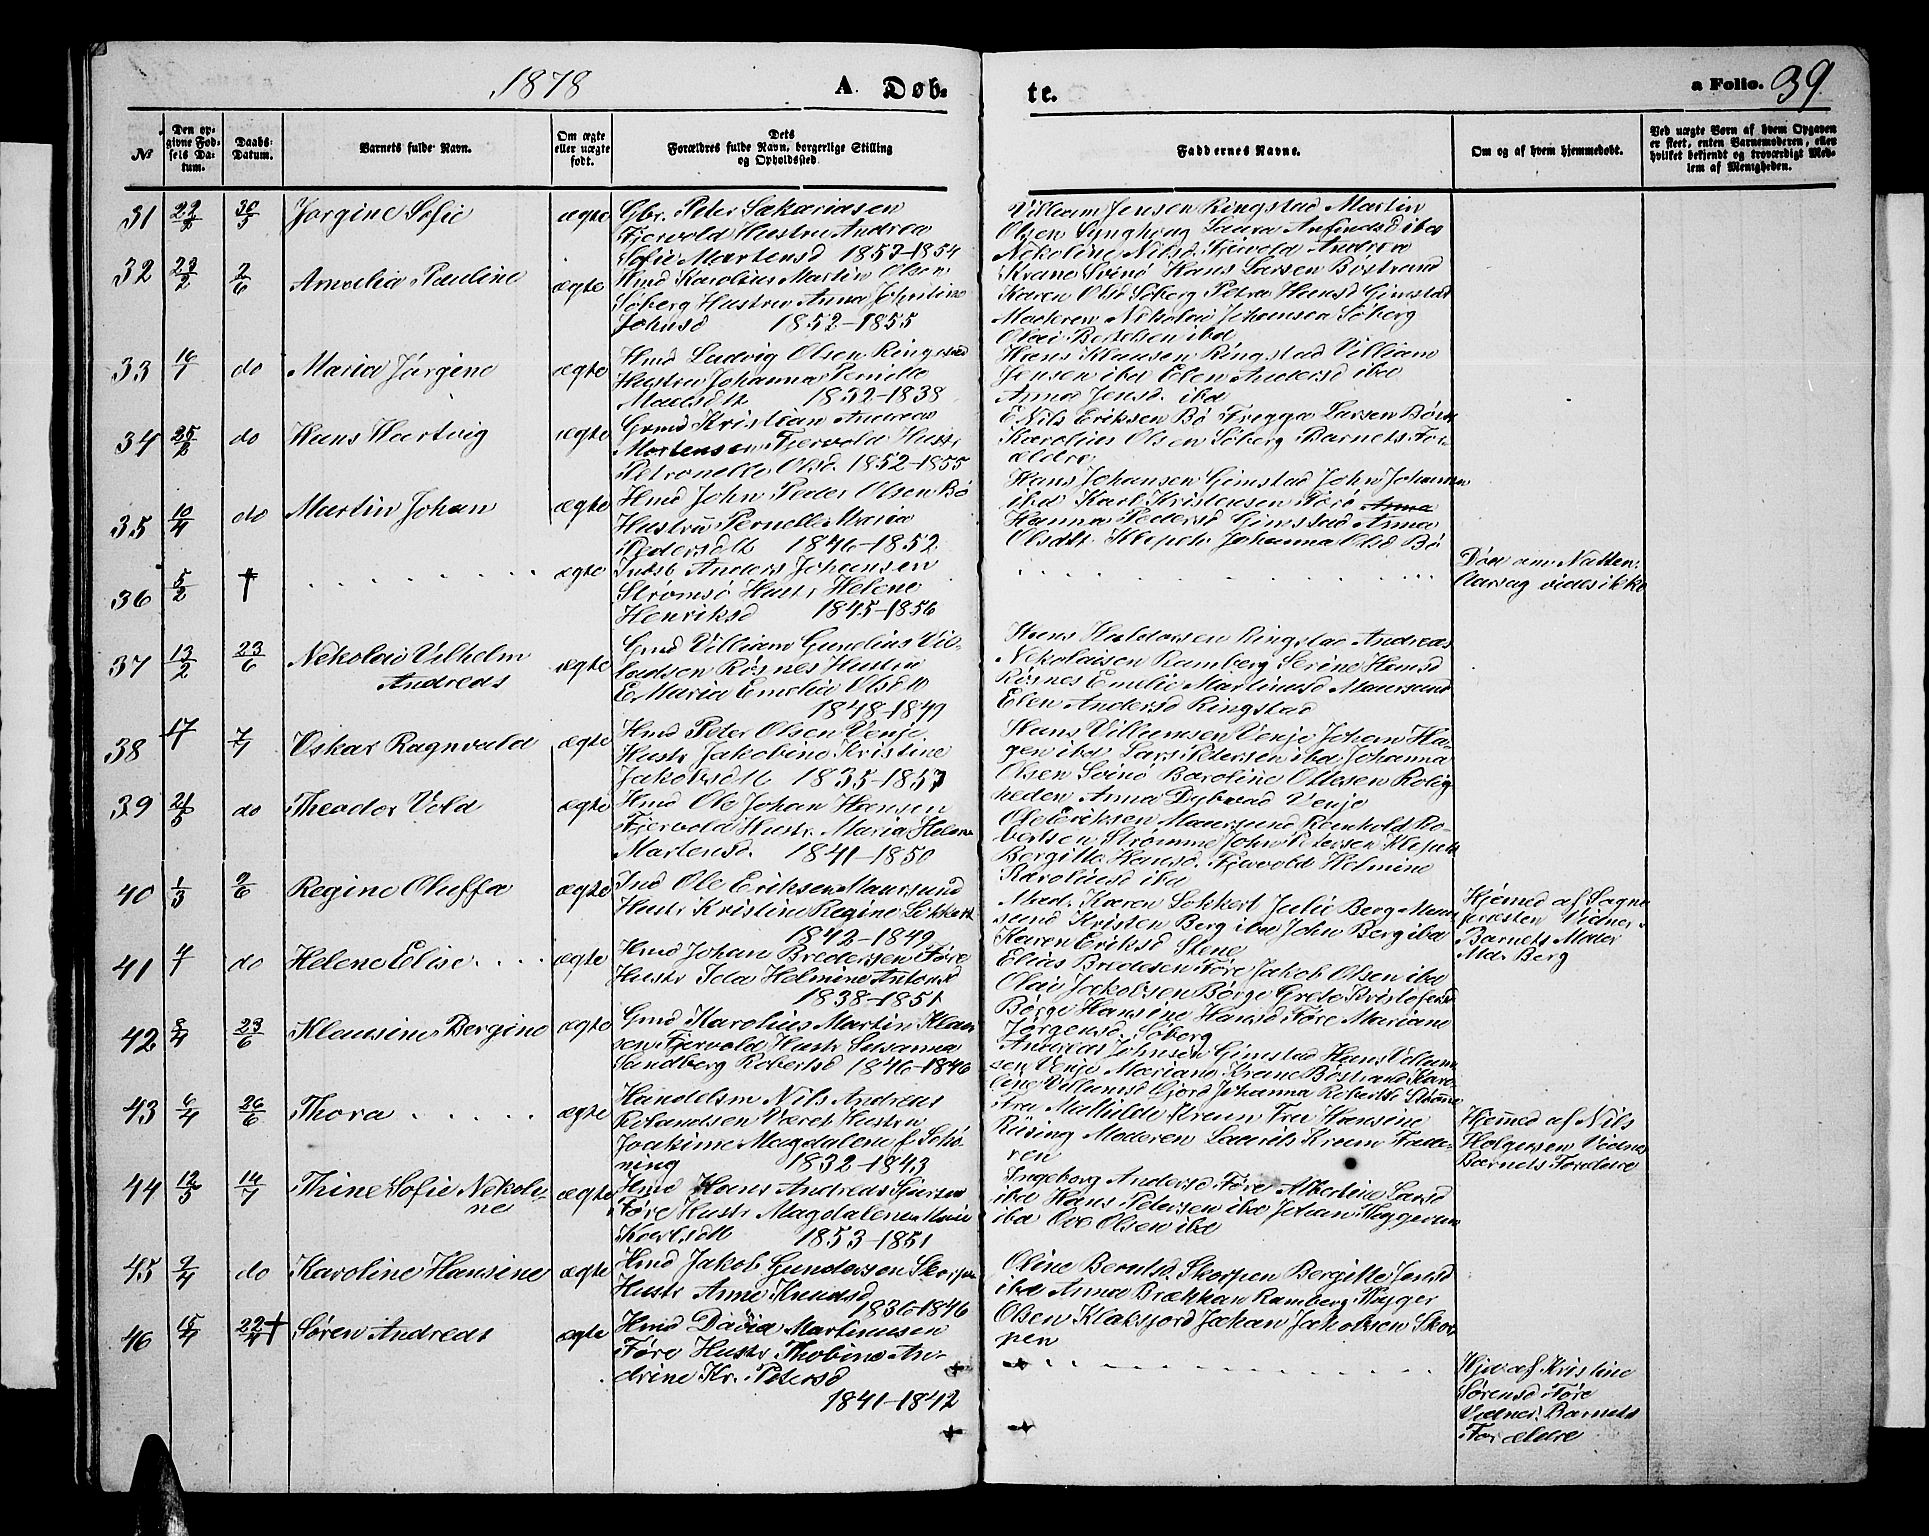 1878
A. Døb-
te.
a Folio. 39
№
Den op-
givne Fød-
sels Da-
tum.
Daabs-
Datum.
Barnets fulde Navn.
Om ægte
eller uægte
født.
Dets
Forældres fulde Navn, borgerlige Stilling
og Opholdssted.
Faddernes Navne.
Om og af hvem hjemmedøbt.
Ved uægte Børn af hvem Opgaven
er skeet, enten Barnemoderen, eller
hvilket bekjendt og troværdigt Med-
lem af Menigheden.
31 22/2 30/5 Jørgine Sofie ægte Gbr. Peter Sakariasen
Fjervold Hustru Andrea
Sofie Martensd 1853-1854
Villiam Jensen Ringstad Martin
Olsen Lynghaug Laura Anfindsd ibd
Nekoline Nilsd. Fjervold Andrea
32 23/2 2/6 Amelia Pauline ægte Hmd Karolius Martin Olsen
Søberg Hustru Anna
Johnsd 1852-1855
Krane Svinø Hans Larsen Bøstrand
Karen Olsd Søberg Petra Hansd Gimstad
Maderen Nekolai Johansen Søberg
Olai ibd
33 16/1 do Maria Jørgine ægte Hmd Ludvig Olsen Ringstad
Hustru Johanna Pernille
1852-1838
Hans Klausen Ringstad Villiam
Jensen ibd Elen Andersd ibd
Anna Jensd. ibd
34 25/2 do Hans Hartvig ægte Grmd Kristian Andreas
Mortensen Fjervold Hustr
Petronelle Olsd. 1852-1855
Nils Eriksen Bø Fregga Larsen
Karolius Olsen Søberg Barnets For-
ældre
35 10/4 do Martin Johan ægte Hmd John Peder Olsen Bø
Hustru Pernelle Maria
Pedersdtr 1846-1852
Hans Johansen Gimstad John Johansen
ibd Karl Kristensen Førø Anna
Hanna Pedersd Gimstad Anna
Olsdtr. Johanna Olsd Bø
36 5/2 † ægte Indst. Anders Johansen
Strømsø Hustr Helene
Henriksd 1845-1856
Død om Natten.
Aarsag vides ikke
37 13/2 23/6 Nekolai Vilhelm
Andreas ægte Gmd Villiam Gunelius Vil-
ladsen Røsnes Hustru
Er Maria Emelia Olsd
1848-1849
Hans Haldorsen Ringstad Andreas
Nekolaisen Ramberg Serine Hansd
Røsnes Emelie Martinusd Maursund
Elen Andersd Ringstad
38 17/1 7/7 Oskar Ragnvald ægte Hmd Peter Olsen Venje
Hustr Jakobine Kristine
Jakobsdtr 1835-1853
Hans Villumsen Venje Johan Ha-
gen ibd Lars Petersen ibd Johanna
Olsen Svinø Baroline Ottesen Rolig
heden Anna Dybvad Venje
39 21/5 do Theodor Vold ægte Hmd Ole Johan Hansen
Fjervold Hustr. Maria Helene
Martensd. 1841-1850
Ole Eriksen Maursund Reinhold Ro-
bertsen Strømme John Petersen
Bergitte Hansd. Fjervold Helmine
Karoliusd ibd
40 1/3 2/6 Regine Oluffa ægte Ind Ole Eriksen Maursund
Hustr Kristine Regine Lokkert
1842-1849
Mad. Karen Lokkert Julie Berg Maur
sund Kristen Berg ibd John Berg ibd
Karen Eriksd Stene
Hjemed af Sogne
præsten Vidner
Barnets Moder
Md. Berg
41 4/1 do Helene Elise ægte Hmd Johan Bredersen Føre
Hustr Ida Helmine Antonsd
1838-1851
Elias Bredesen Føre Jakob Olsen ibd
Olai Jakobsen Børge Grete Kristofersd
Børge Hansine Hansd Føre Mariane
Jørgensd. Søberg
42 8/4 23/6 Klausine Bergine ægte Gmd Karolius Martin Klau
sen Fjervold Hustr Susanna
Sandberg Robertsd 1846-1846
Andreas Johnsen Gimstad Hans Villum
sen Venje Mariane Krane Bøstrand Karo-
line Villumsd Gjord Johanna Robertsd Strømme
43 6/4 26/6 Thora ægte Handelsm Nils Andreas
Rolandsen Været Hustru
Joakime Magdalene f. Schø-
ning 1832-1843
Fru Mathilde Krum Fru Hansine
Rüsing Moderen Laurits Krum Fade-
ren
Hjemed af Nils
Holgersen Vidnes
Barnets Forældre
44 12/5 14/7 Thine Sofie Nekoli-
ne ægte Hmd Hans Andreas Sjursen
Føre Hustr Magdalene Marie
Karlsdtr 1853-1851
Ingeborg Andersd Føre Albertine Larsd
ibd Hans Petersen ibd Johan
ibd Ove Olsen ibd
45 2/4 do Karoline Hansine ægte Hmd Jakob Gundersen Skorpen
Hustr Anne Knudsd
1836-1846
Oline Berntsd. Skorpen Bergitte Jensd
ibd Anna Brækkan Ramberg
Olsen Klaksjord Johan Jakobsen Skor
pen
46 15/4 22/4† Søren Andreas ægte Hmd David Martinusen
Føre Hustr Thobine An-
drine Kr. Petersd
1841-1842
Hje af Kristine
Sørensd Føre
Vidner: Barnets
Forældre